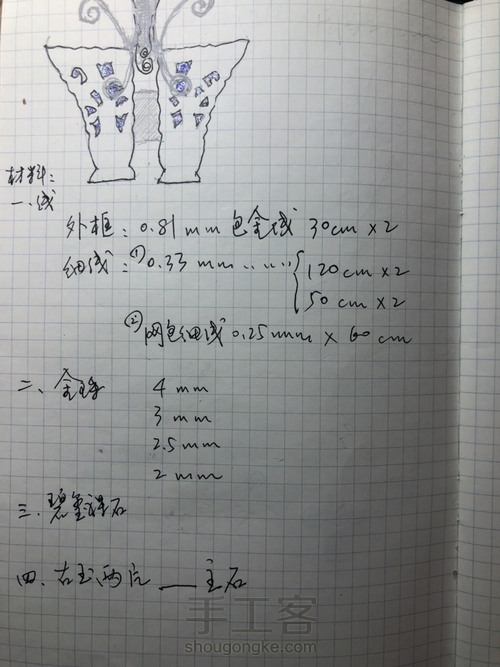 材料:
一.线
外框: 0.81mm包金线 30cm×2
细线: ①0.33mm 〃 〃 〃 { 120cm×2
50cm×2
②网包细线0.25mm × 60cm
二、金珠 4mm
3mm
2.5mm
2mm
三.碧玺 石
四.古玉两片——主石
手工客
shougongke.com